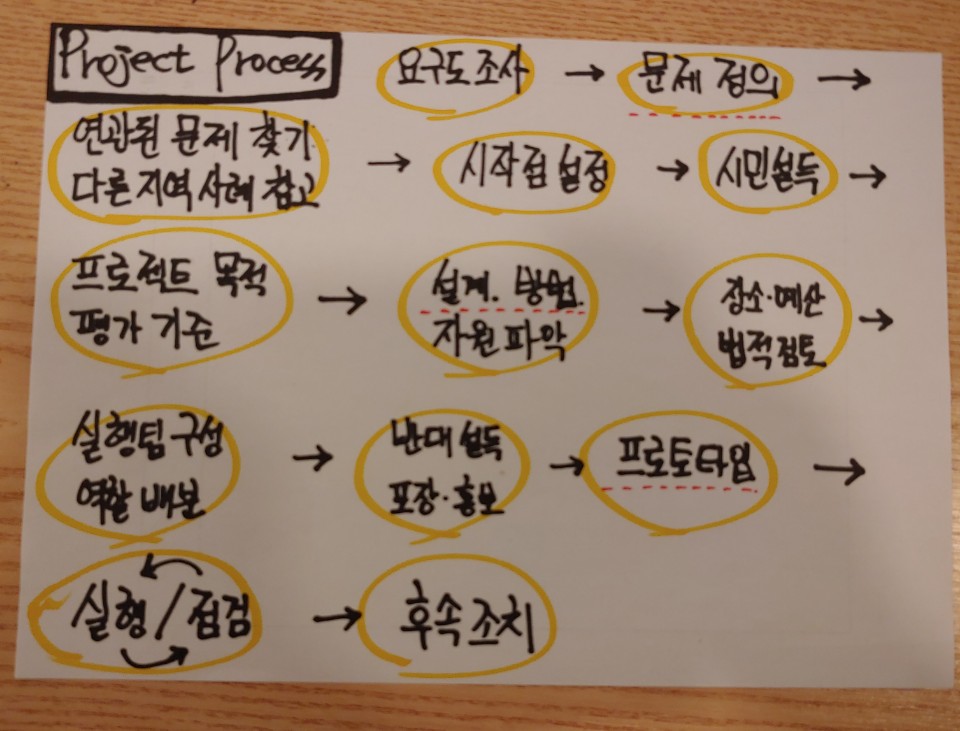 Project Process
요구도 조사 → 문제 정의 →
연관된 문제 찾기
다른 지역 사례 참고 → 시작점 설정 → 시민설득 →
프로젝트 목적
평가 기준 → 설계. 방법.
자원 파악 → 장소·예산
법적검토 →
실행팀 구성
역할 배분 → 반대 설득
포장·홍보 → 프로토타입 →
실행/점검 → 후속 조치